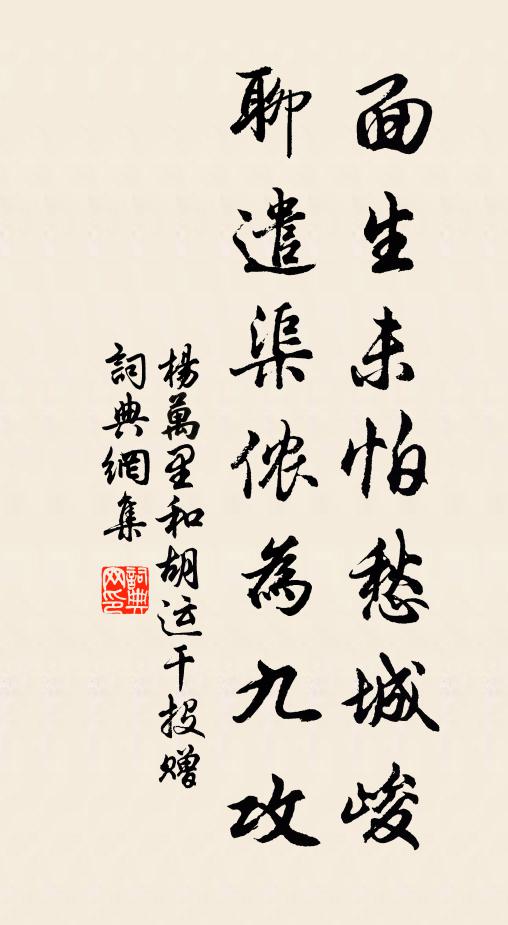 面生未怕愁城峻
聊遣渠侬為九攻
楊萬里和胡运干投赠
詞典網集
詞典
网印